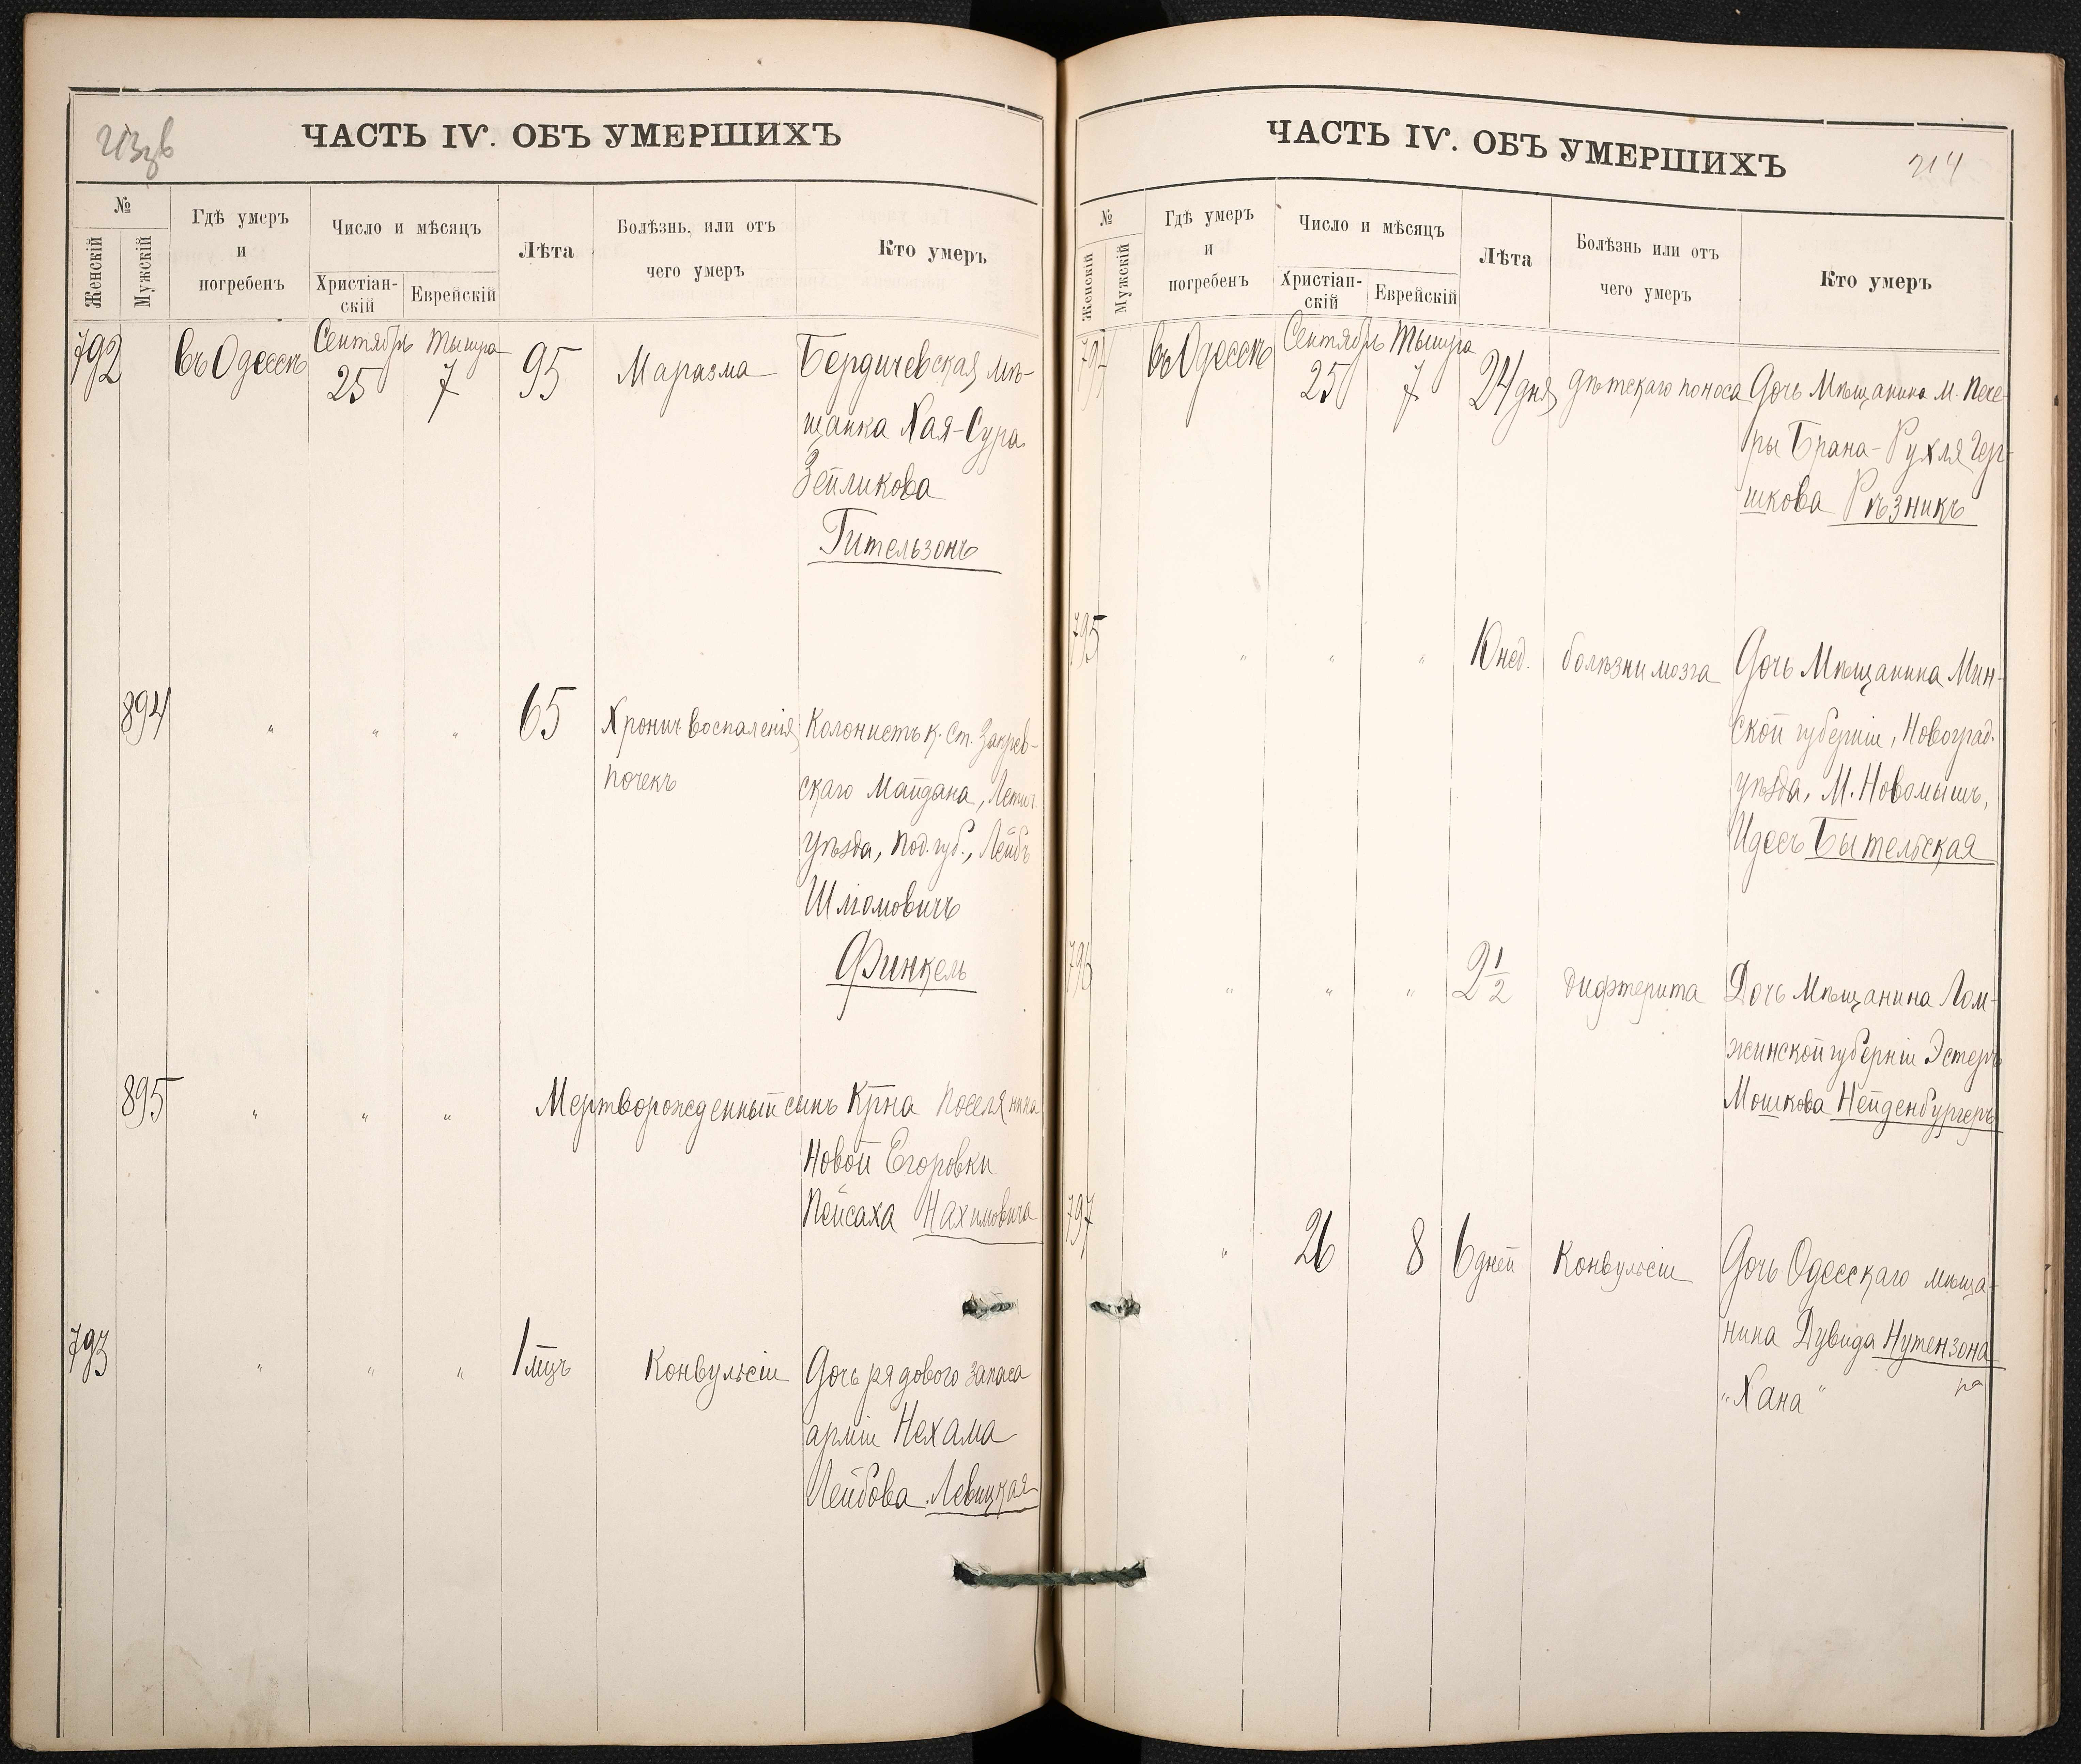 213зв
ЧАСТЬ IV. ОБЪ УМЕРШИХЪ
№
Женскій
Мужскій
Гдѣ умеръ
и
погребенъ
Число и мѣсяцъ
Христіан-
скій
Еврейскій
Лѣта
Болѣзнь, или отъ
чего умеръ
Кто умеръ
792 въ Одессѣ Сентябрь 25 Тышра 7 95 Маразма Бердичевская мѣ-
щанка Хая-Сура
Зейликова
Гительзонъ
894 " " " 65 Хронич. воспаленія Колонистъ к. Ст. Закрев-
почекъ скаго Майдана, Летич.
уѣзда, Под. губ., Лейбъ
Шліомовичъ
Финкель
895 " " " Мертворожденный сынъ Крна поселянина
Новой Егоровки
Пейсаха Нахимовича
793 " " " 1 мцъ Конвульсіи Дочь рядового запаса
арміи Нехама
Лейбова Левицкая
ЧАСТЬ IV. ОБЪ УМЕРШИХЪ
214
№
Женскій
Мужскій
Гдѣ умеръ
и
погребенъ
Число и мѣсяцъ
Христіан-
скій
Еврейскій
Лѣта
Болѣзнь или отъ
чего умеръ
Кто умеръ
794 въ Одессѣ Сентябрь 25 Тышра 7 24 дня дѣтскаго поноса Дочь Мѣщанина м. Пече-
ры Брана-Рухля Гер-
шкова Рѣзникъ
795 " " " 10 нед. болѣзни мозга Дочь Мѣщанина Мин-
ской губерніи, Новоград.
уѣзда, М. Новомышъ,
Идесь Бытельская
796 " " " 2 1/2 Дифтерита Дочь Мѣщанина Лом-
жинской губерніи Эстеръ
Мошкова Нейденбургеръ
797 " 26 8 6 дней Конвульсіи Дочь Одесскаго мѣща-
нина Дувида Нутензона
"Хана"